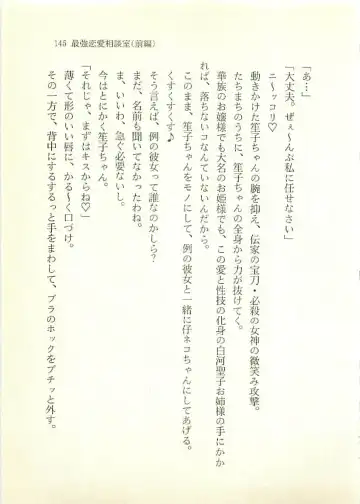 145 最強恋愛相談室(前編)
「あ…」
「大丈夫。ぜぇ～んぶ私に任せなさい」
ニ～ッコリ♡
動きかけた笙子ちゃんの腕を抑え、伝家の宝刀・必殺の女神の微笑み攻撃。
たちまちのうちに、笙子ちゃんの全身から力が抜けてく。
華族のお嬢様でも大名のお姫様でも、この愛と性技の化身の白河聖子お姉様の手にかか
れば、落ちないコなんていないんだから。
このまま、笙子ちゃんをモノにして、例の彼女と一緒に仔ネコちゃんにしてあげる。
くすくすくす♪
そう言えば、例の彼女って誰なのかしら?
まだ、名前も聞いてなかったわね。
ま、いいわ、急ぐ必要ないし。
今はとにかく笙子ちゃん。
「それじゃ、まずはキスからね♡」
薄くて形のいい唇に、かる～く口づけ。
その一方で、背中にするするっと手をまわして、ブラのホックをプチッと外す。